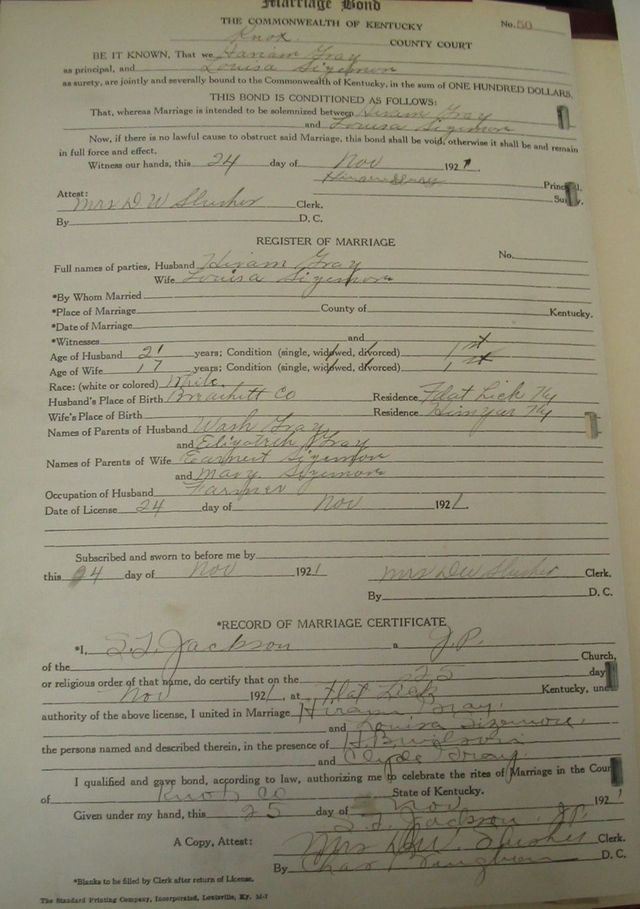 Marriage Bond
THE COMMONWEALTH OF KENTUCKY No. 50
Knox COUNTY COURT
BE IT KNOWN, That we Hariam Gray
as principal, and Louisa Sizemon
as surety, are jointly and severally bound to the Commonwealth of Kentucky, in the sum of ONE HUNDRED DOLLARS,
THIS BOND IS CONDITIONED AS FOLLOWS:
That, whereas Marriage is intended to be solemnized between Hiram Gray
and Louisa Sizemon
Now, if there is no lawful cause to obstruct said Marriage, this bond shall be void, otherwise it shall be and remain
in full force and effect.
Witness our hands, this 24 day of Nov 1921
Hiram Gray Principal.
Attest: Surety.
Mrs D W Slusher Clerk.
By D. C.
REGISTER OF MARRIAGE
Full names of parties, Husband Hiram Gray No.
Wife Louisa Sizemore
*By Whom Married
*Place of Marriage County of Kentucky.
*Date of Marriage
*Witnesses and
Age of Husband 21 years; Condition (single, widowed, divorced) 1st
Age of Wife 17 years; Condition (single, widowed, divorced) 1st
Race: (white or colored) White
Husband's Place of Birth Breathitt Co Residence Flat Lick Ky
Wife's Place of Birth Residence Hinyar Ky
Names of Parents of Husband Wash Gray
and Elizabeth Gray
Names of Parents of Wife Earnest Sizemon
and Mary Sizemon
Occupation of Husband Farmer
Date of License 24 day of Nov 1921.
Subscribed and sworn to before me by
this 24 day of Nov 1921 Mrs D W Slusher Clerk.
By D. C.
*RECORD OF MARRIAGE CERTIFICATE
*I, S. L. Jackson a J.P.
of the Church,
or religious order of that name, do certify that on the 25 day
Nov 1921, at Flat Lick Kentucky, unde
authority of the above license, I united in Marriage Hiram Gray,
and Louisa Sizemore,
the persons named and described therein, in the presence of
and Clyde Gray.
I qualified and gave bond, according to law, authorizing me to celebrate the rites of Marriage in the Coun
of Knox Co State of Kentucky.
Given under my hand, this 25 day of Nov 1921
S. L. Jackson J.P.
A Copy, Attest: Mrs D.W. Slusher Clerk.
By D. C.
*Blanks to be filled by Clerk after return of License.
The Standard Printing Company, Incorporated, Louisville, Ky. M-7